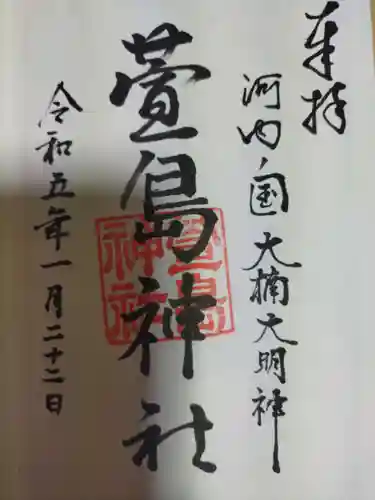 奉拝
河内ノ国 大楠大明神
萱島神社
萱島神社
令和五年一月二十二日